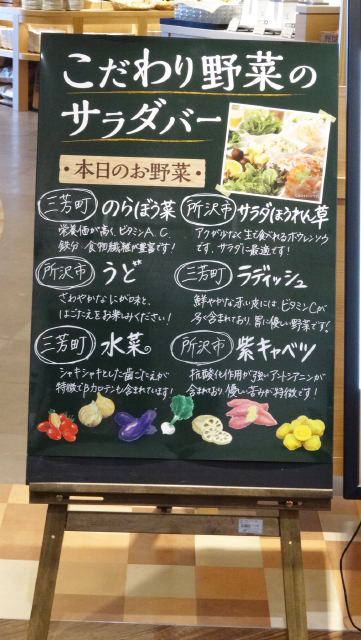 こだわり野菜の
サラダバー
・本日のお野菜・
三芳町 のらぼう菜
栄養価が高く、ビタミンA、C、
鉄分、食物繊維が豊富です！
所沢市 サラダほうれん草
アクが少なく生で食べれるホウレンソウ
です。サラダに最適です！
所沢市 うど
さわやかなにが味と、
はごたえをお楽しみください！
三芳町 ラディッシュ
鮮やかな赤い皮には、ビタミンCが
多く含まれており、胃に優しい野菜です。
三芳町 水菜
シャキシャキとした歯ごたえが
特徴でβカロテンも含まれています！
所沢市 紫キャベツ
抗酸化作用が強いアントシアニンが
含まれており、優しい苦みが特徴です！